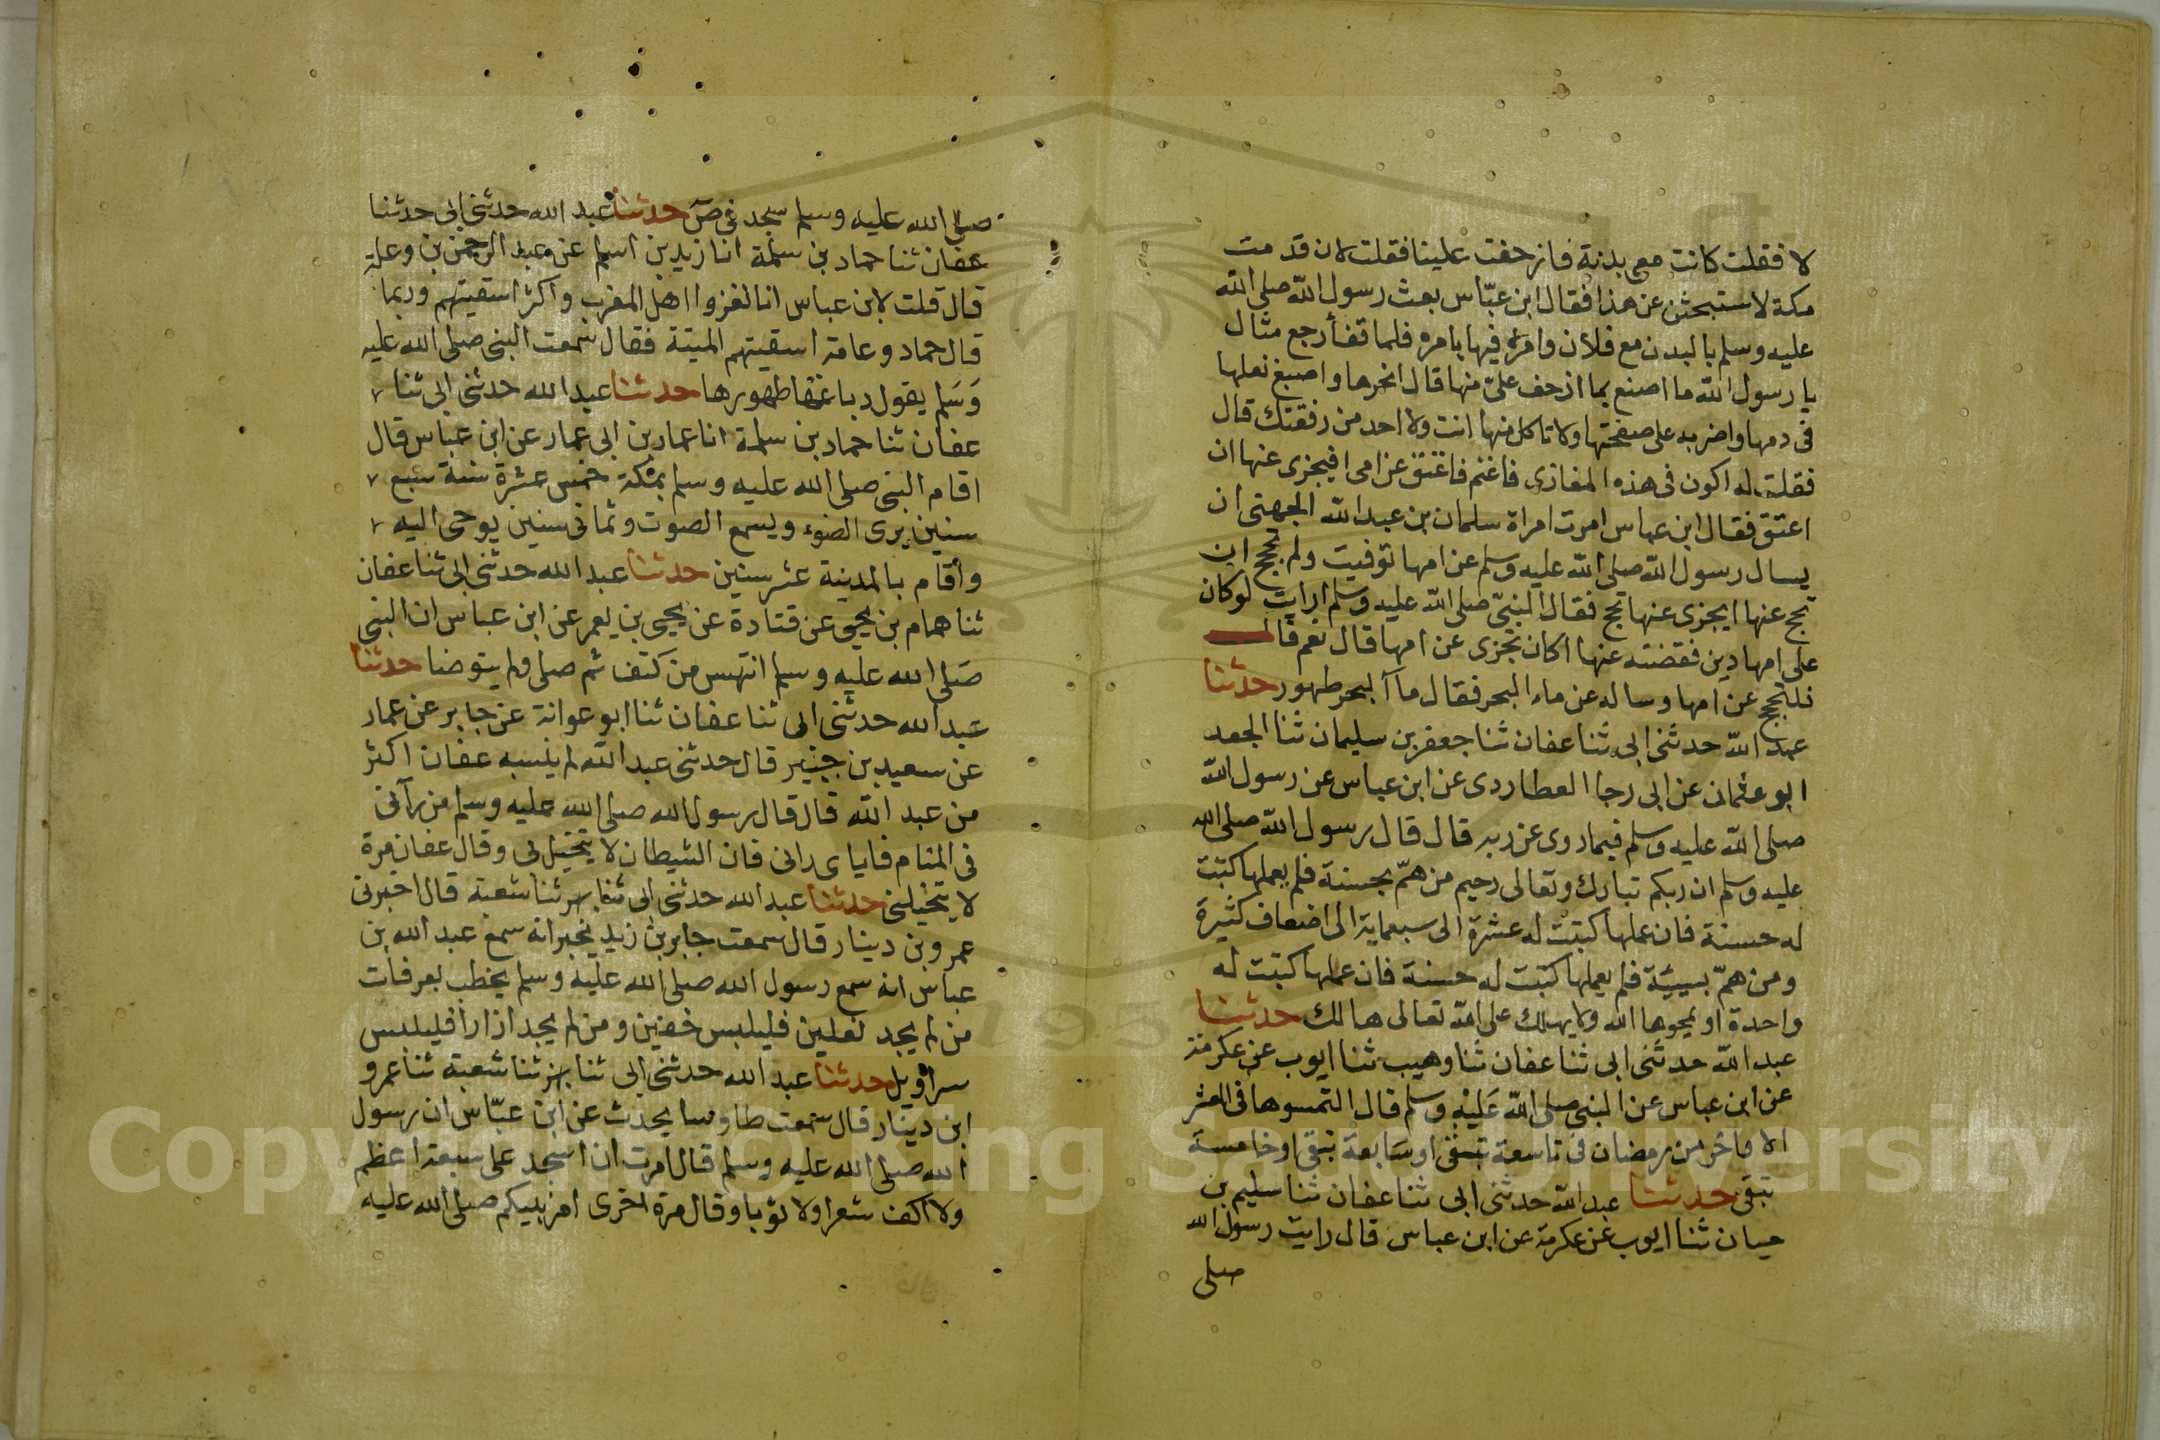 لا فقلت كانت معى بدنة فازحفت علينا فقلت لان قدمت
مكة لاستبحثن عن هذا فقال ابن عبّاس بعث رسول الله صلى الله
عليه وسلم بالبدن مع فلان وامره فيها بامره فلما قفا رجع فقال
يا رسول الله ما اصنع بما ازحف علىّ منها قال انحرها واصبغ نعلها
فى دمها واضربه على صفحتها ولا تاكل منها انت ولا احد من رفقتك قال
فقلت له اكون فى هذه المغازى فاغنم فاعتق عن امى افيجزى عنها ان
اعتق فقال ابن عباس امرت امراة سلمان بن عبد الله الجهنى ان
يسال رسول الله صلى الله عليه وسلم عن امها توفيت ولم تحجج اين
تحج عنها ايجزى عنها تحج فقال النبىّ صلى الله عليه وسلم ارايت لو كان
على امها دين فقضته عنها اكان تجزى عن امها قال نعم قال
فلتحجج عن امها وساله عن ماء البحر فقال ماآ البحر طهور حدثنا
عبد الله حدثنى ابى ثنا عفان ثنا جعفر بن سليمان ثنا الجعد
ابو عثمان عن ابى رجا العطاردى عن ابن عباس عن رسول الله
صلى الله عليه وسلم فيما روى عن ربه قال قال رسول الله صلى الله
عليه وسلم ان ربكم تبارك وتعالى رحيم من همّ بحسنة فلم يعملها كتبت
له حسنة فان عملها كتبت له عشرة الى سبعماية الى اضعاف كثيرة
ومن همّ بسيئة فلم يعملها كتبت له حسنة فان عملها كتبت له
واحدة او يمحوها الله ولا يهلك على الله تعالى هالك حدثنا
عبد الله حدثنى ابى ثنا عفان ثنا وهيب ثنا ايوب عن عكرمة
عن ابن عباس عن النبى صلى الله عَليْه وسلم قال التمسوها فى العشر
الاواخر من رمضان فى تاسعة تبقى او سَابعة تبقى او خامسة
تبقى حدثنا عبد الله حدثنى ابى ثنا عفان ثنا سليم بن
حيان ثنا ايوب عن عكرمة عن ابن عباس قال رايت رسول الله
صلى
صلى الله عليه وسلم سجد فى صٓ حدثنا عبد الله حدثنى ابى حدثنا
عفان ثنا حماد بن سلمة انا زيد بن اسلم عن عبد الرحمن بن وعلة
قال قلت لابن عباس انا لغزوا اهل المغرب واكثر اسقيتهم وربما
قال حماد وعامة اسقيتهم الميتة فقال سمعت النبى صلى الله عليه
وَسَلم يقول دباغها طهورها حدثنا عبد الله حدثنى ابى ثنا
عفان ثنا حماد بن سلمة انا عمار بن ابى عمار عن ابن عباس قال
اقام النبى صلى الله عليه وسلم بمكة خمس عشرة سنة سبع
سنين يرى الضوء ويسمع الصوت وثمانى سنين يوحى اليه
وأقام بالمدينة عشر سنين حدثنا عبد الله حدثنى ابى ثنا عفان
ثنا همام بن يحيى عن قتادة عن يحيى بن يعمر عن ابن عباس ان النبى
صَلى الله عليه وسلم انتهس من كتف ثم صلى ولم يتوضا حدثنا
عبد الله حدثنى ابى ثنا عفان ثنا ابو عوانة عن جابر عن عمار
عن سعيد بن جبير قال حدثنى عبد الله لم ينسبه عفان اكثر
من عبد الله قال قال رسول الله صلى الله عليه وسلم من رآنى
فى المنام فاياى رانى فان الشيطان لا يتخيل بى وقال عفان مرة
لا يتخيلنى حدثنا عبد الله حدثنى ابى ثنا بهز ثنا شعبة قال اخبرنى
عمرو بن دينار قال سمعت جابر بن زيد يخبر انه سمع عبد الله بن
عباس انه سمع رسول الله صلى الله عليه وسلم يخطب بعرفات
من لم يجد نعلين فليلبس خفين ومن لم يجد ازارا فليلبس
سراويل حدثنا عبد الله حدثنى ابى ثنا بهز ثنا شعبة ثنا عمرو
ابن دينار قال سمعت طاوسا يحدث عن ابن عبّاس ان رسول
الله صلى الله عليه وسلم قال امرت ان اسجد على سبعة اعظم
ولا اكف شعرا ولا ثوبا وقال مرة اخرى امر نبيكم صلى الله عليه
Copyright © King Saud University